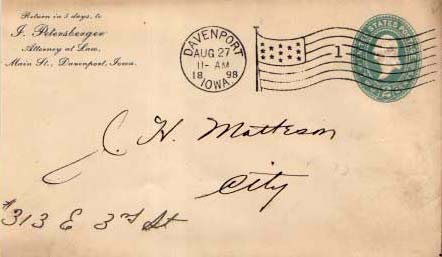 Return in 5 days, to
J. Petersberger
Attorney at Law,
Main St., Davenport, Iowa.
DAVENPORT
AUG 27
11-AM
18 98
IOWA.
1
UNITED STATES POSTAGE
2
J. H. Matteson
City
#313 E 3rd St